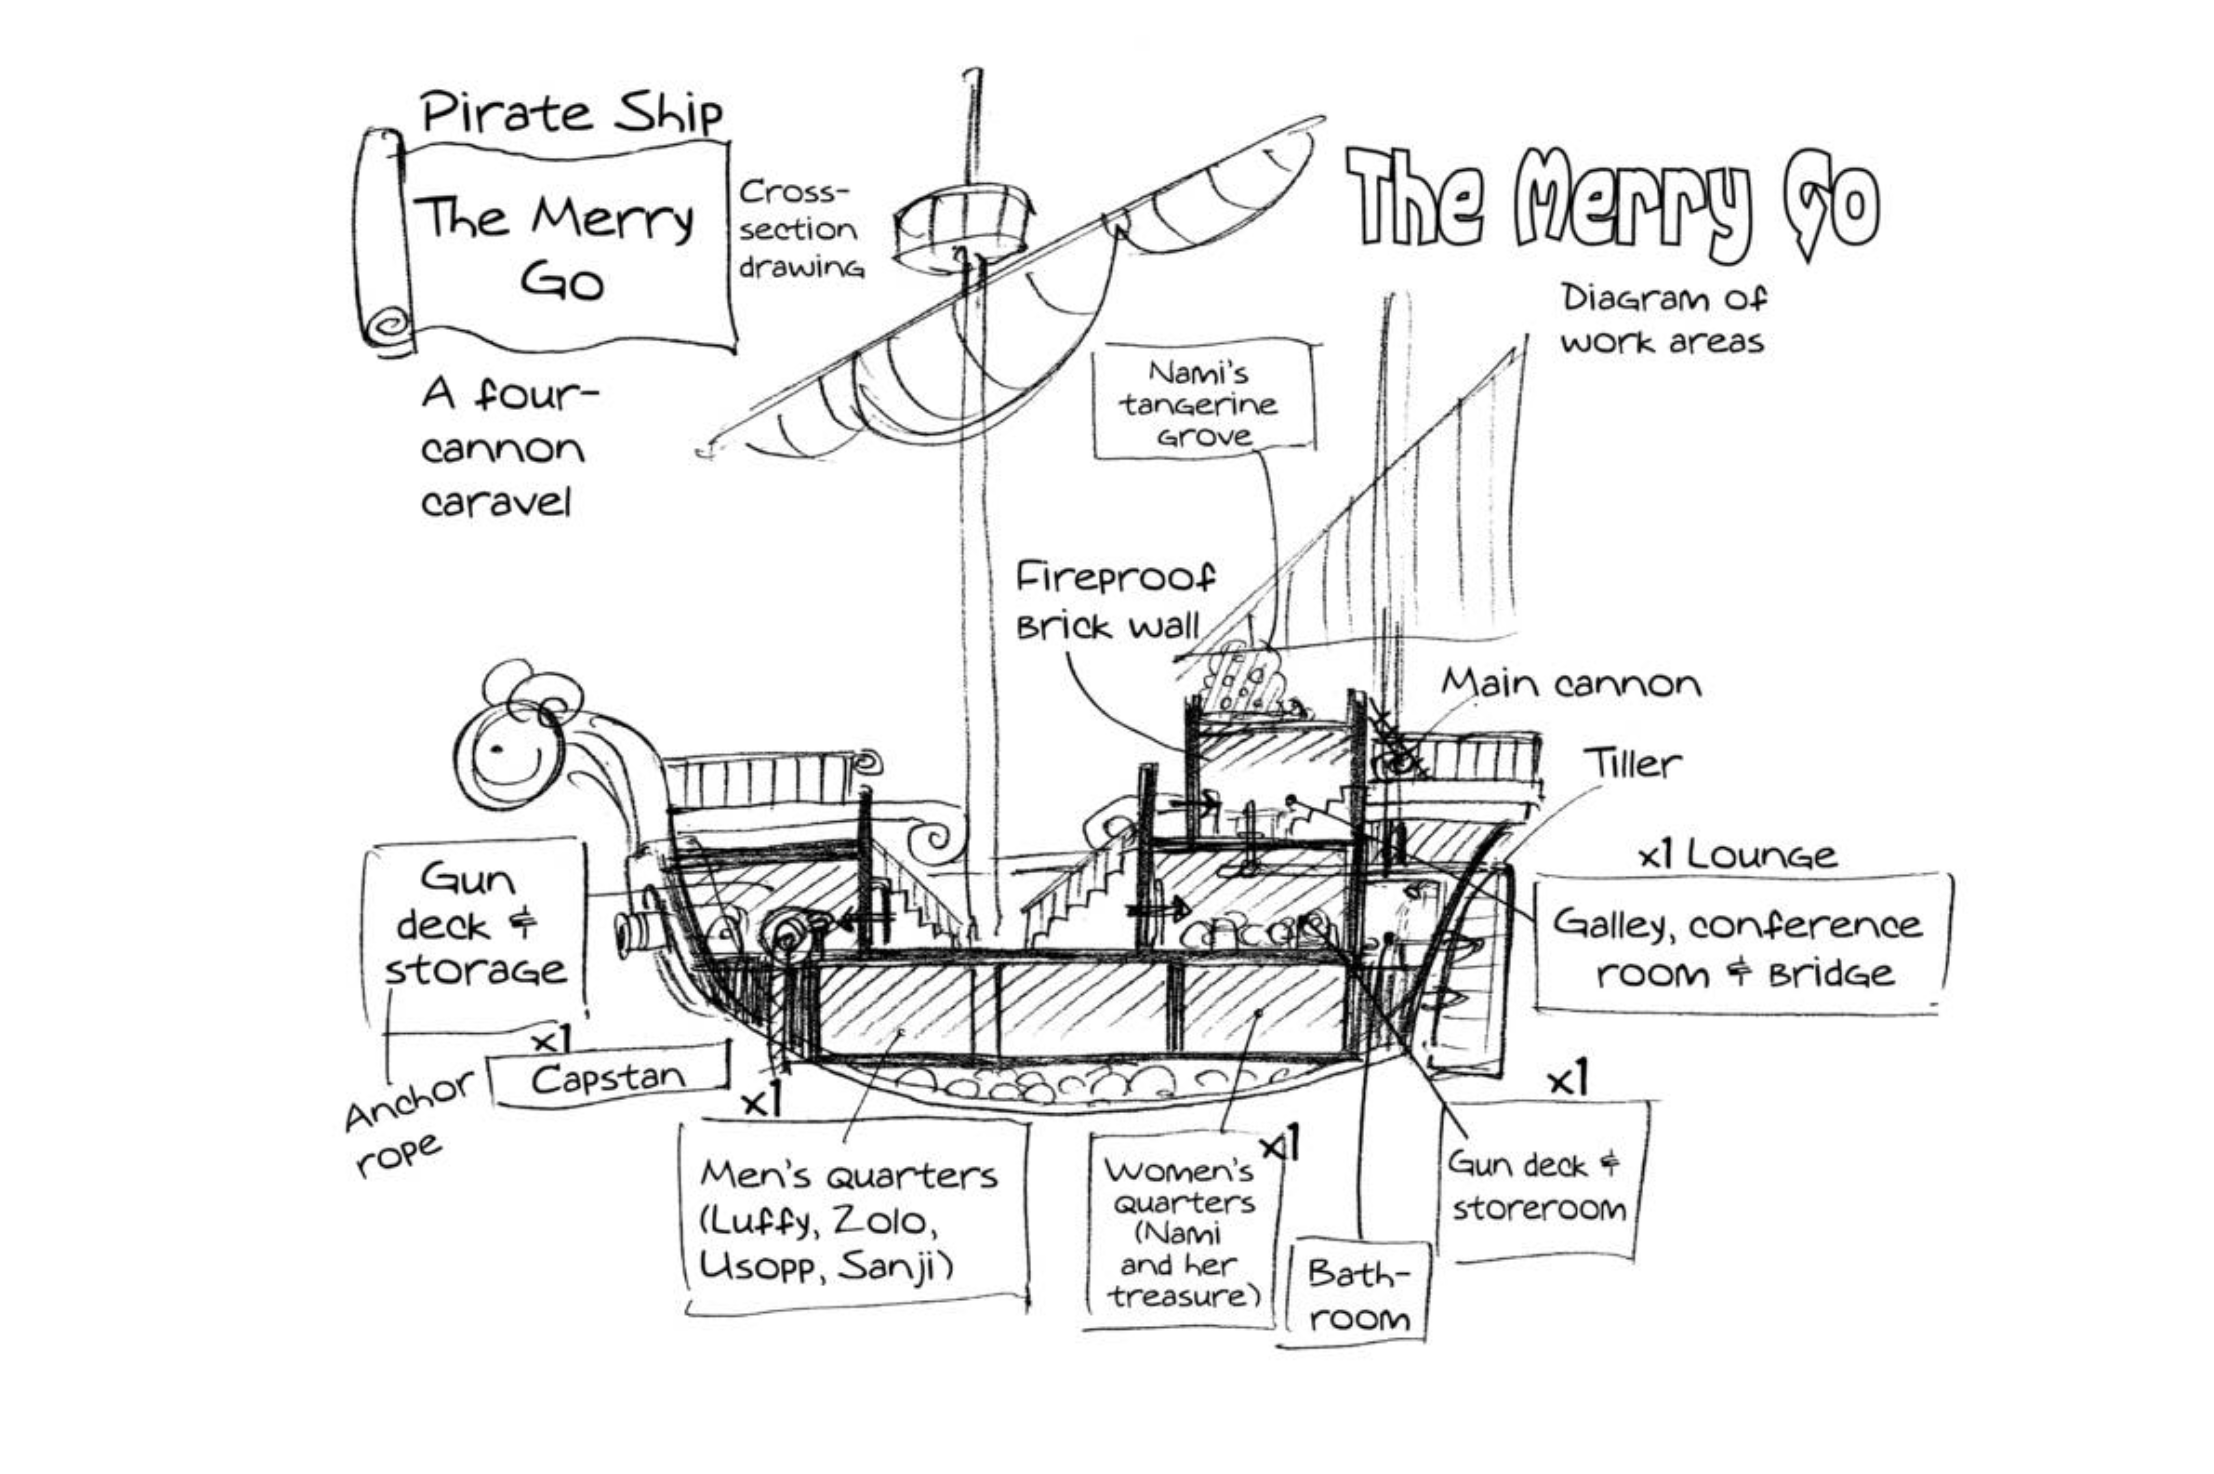 Pirate Ship
The Merry
Go
Cross-
section
drawing
A four-
cannon
caravel
The Merry Go
Diagram of
work areas
Nami's
tangerine
grove
Fireproof
Brick wall
Main cannon
Tiller
x1 Lounge
Galley, conference
room & Bridge
Gun
deck &
storage
x1
Capstan
Anchor
rope
x1
Men's quarters
(Luffy, Zolo,
Usopp, Sanji)
x1
Women's
quarters
(Nami
and her
treasure)
Bath-
room
x1
Gun deck &
storeroom